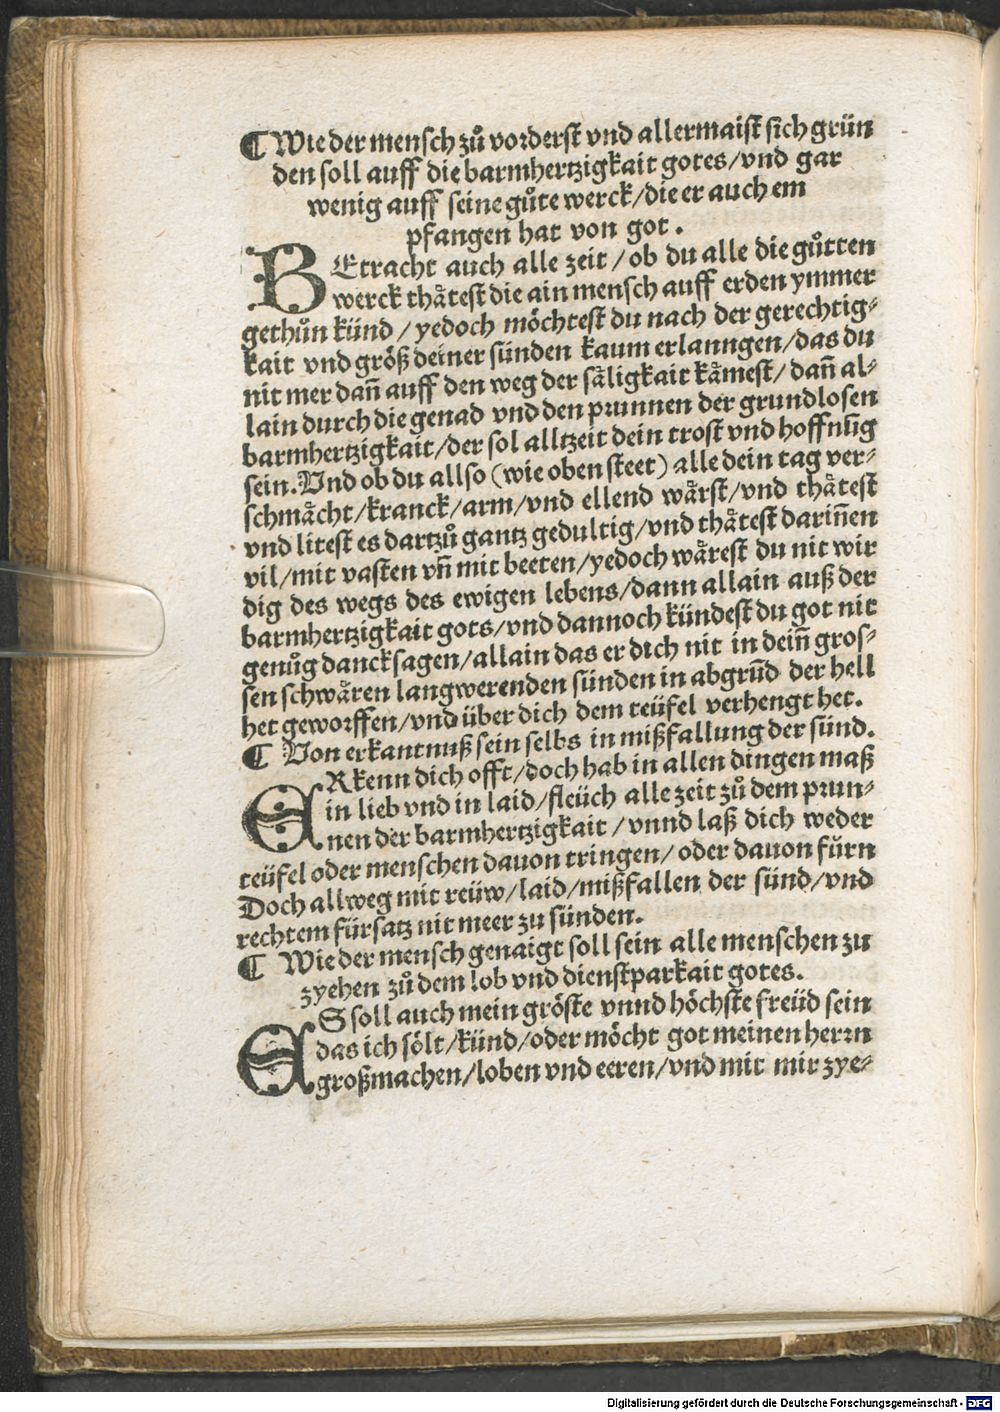 ¶ Wie der mensch zů vorderst vnd allermaist sich grün
den soll auff die barmhertzigkait gotes/vnd gar
wenig auff seine gůte werck/die er auch em
pfangen hat von got.
BEtracht auch alle zeit/ob du alle die gůtten
werck thåtest die ain mensch auff erden ymmer
gethůn künd/yedoch möchtest du nach der gerechtig⸗
kait vnd größ deiner sünden kaum erlanngen/das du
nit mer dañ auff den weg der såligkait kåmest/dañ al⸗
lain durch die genad vnd den prunnen der grundlosen
barmhertzigkait/der sol alltzeit dein trost vnd hoffnũg
sein. Vnd ob du allso (wie oben steet) alle dein tag ver⸗
schmåcht/kranck/arm/vnd ellend wårst/vnd thåtest
vnd litest es dartzů gantz gedultig/vnd thåtest dariñen
vil/mit vasten vñ mit beeten/yedoch wårest du nit wir
dig des wegs des ewigen lebens/dann allain auß der
barmhertzigkait gots/vnd dannoch kündest du got nit
genůg dancksagen/allain das er dich nit in deiñ gros⸗
sen schwåren langwerenden sünden in abgrũd der hell
het geworffen/vnd über dich dem teüfel verhengt het.
¶ Von erkantnuß sein selbs in mißfallung der sünd.
ERkenn dich offt/doch hab in allen dingen maß
in lieb vnd in laid/fleüch alle zeit zů dem prun⸗
nen der barmhertzigkait/vnnd laß dich weder
teüfel oder menschen dauon tringen/oder dauon fůrn
Doch allweg mit reüw/laid/mißfallen der sünd/vnd
rechtem fürsatz nit meer zu sünden.
¶ Wie der mensch genaigt soll sein alle menschen zu
zyehen zů dem lob vnd dienstparkait gotes.
ES soll auch mein gröste vnnd höchste freüd sein
das ich sölt/künd/oder möcht got meinen herrn
großmachen/loben vnd eeren/vnd mit mir zye⸗
Digitalisierung gefördert durch die Deutsche Forschungsgemeinschaft - DFG